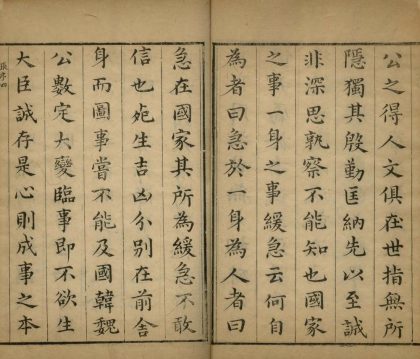 公之得人文俱在世指無所
隱獨其殷勤匡納先以至誠
非深思孰察不能知也國家
之事一身之事緩急云何自
為者曰急於一身為人者曰
急在國家其所為緩急不敢
信也死生吉凶分別在前舍
身而圖事嘗不能及國韓魏
公數定大變臨事即不欲生
大臣誠存是心則成事之本